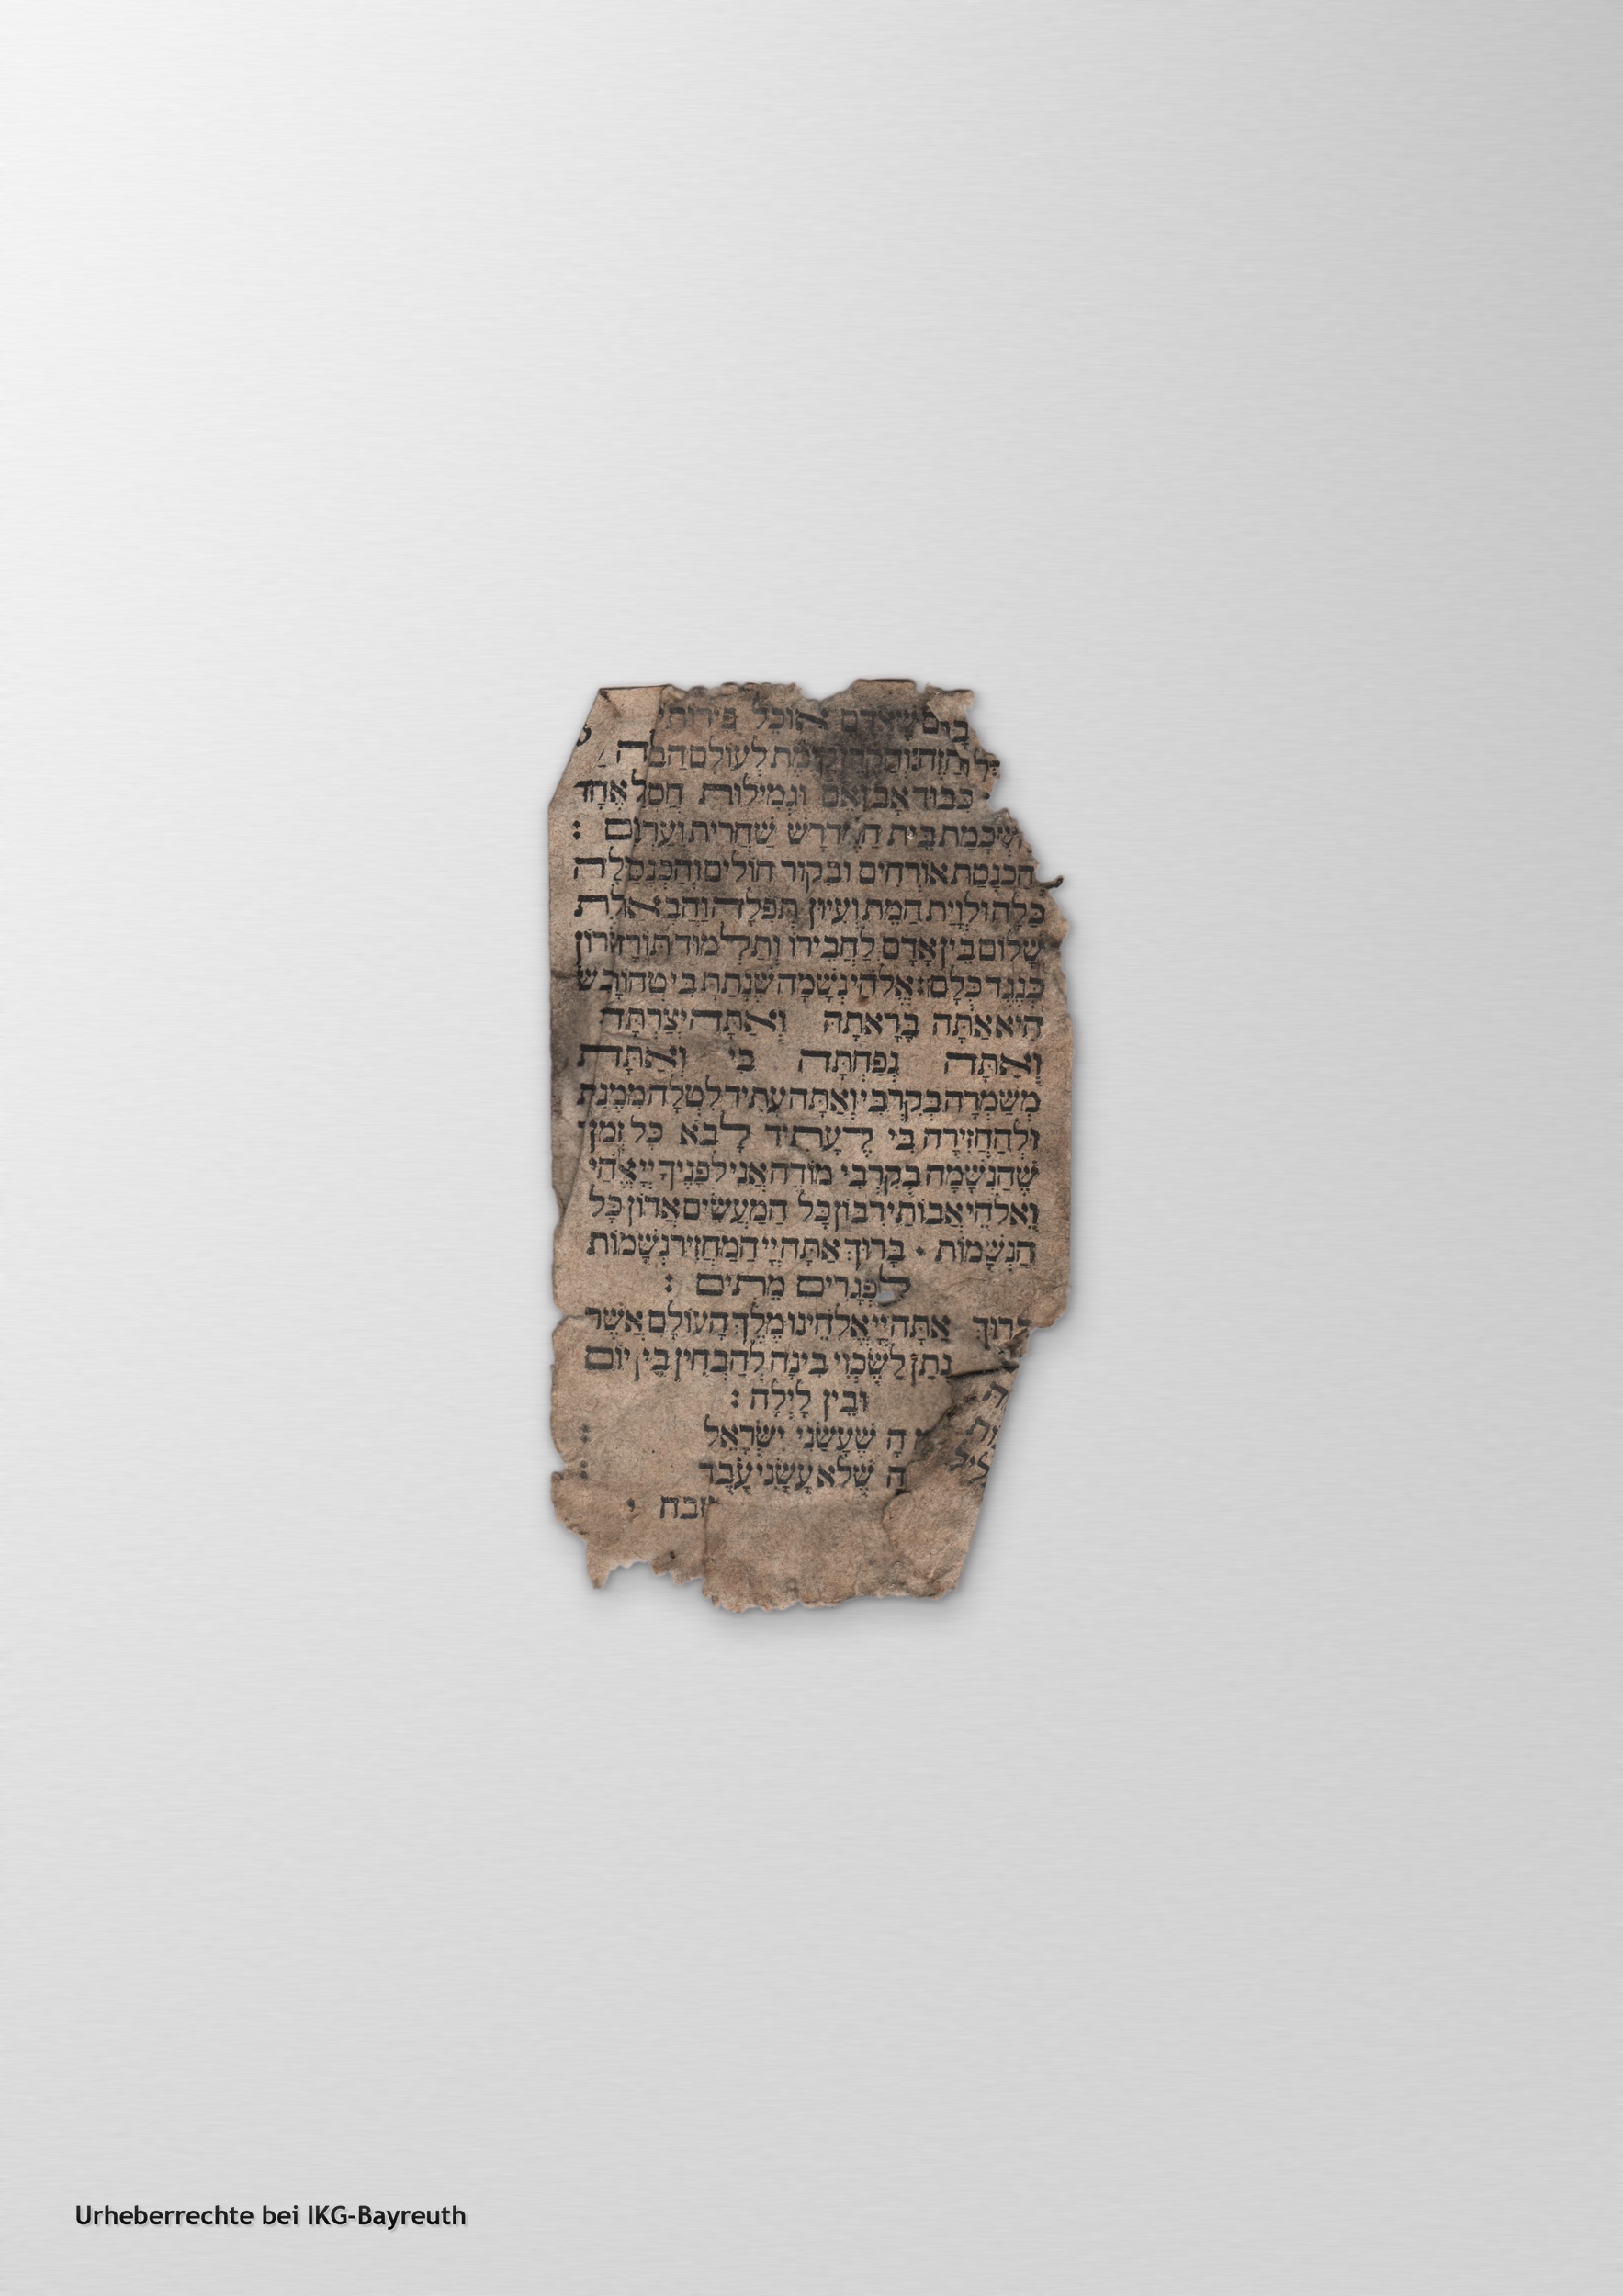 שֶׁאָדָם אוֹכֵל פֵּירוֹתֵי
לְעוֹלָם הַבָּ
כִּבּוּד אָב וָאֵם וּגְמִילוּת חֶסֶ
הַשְׁכָּמַת בֵּית הַמִּדְרָשׁ שַׁחֲרִית וְעַרְ
הַכְנָסַת אוֹרְחִים וּבִקּוּר חוֹלִים וְהַכְנָסַ
כַּלָּה וּלְוָיַת הַמֵּת וְעִיּוּן תְּפִלָּה וַהֲבָאַת
שָׁלוֹם בֵּין אָדָם לַחֲבֵירוֹ וְתַלְמוּד תּוֹרָה
כְּנֶגֶד כֻּלָּם : אֱלֹהַי נְשָׁמָה שֶׁנָּתַתָּ בִּי טְהוֹרָה
הִיא אַתָּה בָרָאתָהּ וְאַתָּה יְצַרְתָּהּ
וְאַתָּה נְפַחְתָּהּ בִּי וְאַתָּה
מְשַׁמְּרָהּ בְּקִרְבִּי וְאַתָּה עָתִיד לִטְּלָהּ מִמֶּנִּי
וּלְהַחֲזִירָהּ בִּי לֶעָתִיד לָבֹא כָּל זְמַן
שֶׁהַנְּשָׁמָה בְּקִרְבִּי מוֹדֶה אֲנִי לְפָנֶיךָ יְיָ אֱלֹהַי
וֵאלֹהֵי אֲבוֹתַי רִבּוֹן כָּל הַמַּעֲשִׂים אֲדוֹן כָּל
הַנְּשָׁמוֹת · בָּרוּךְ אַתָּה יְיָ הַמַּחֲזִיר נְשָׁמוֹת
לִפְגָרִים מֵתִים :
בָּרוּךְ אַתָּה יְיָ אֱלֹהֵינוּ מֶלֶךְ הָעוֹלָם אֲשֶׁר
נָתַן לַשֶּׂכְוִי בִּינָה לְהַבְחִין בֵּין יוֹם
וּבֵין לָיְלָה :
ה שֶׁעָשַׂנִי יִשְׂרָאֵל :
ה שֶׁלֹּא עָשַׂנִי עָבֶד :
Urheberrechte bei IKG-Bayreuth